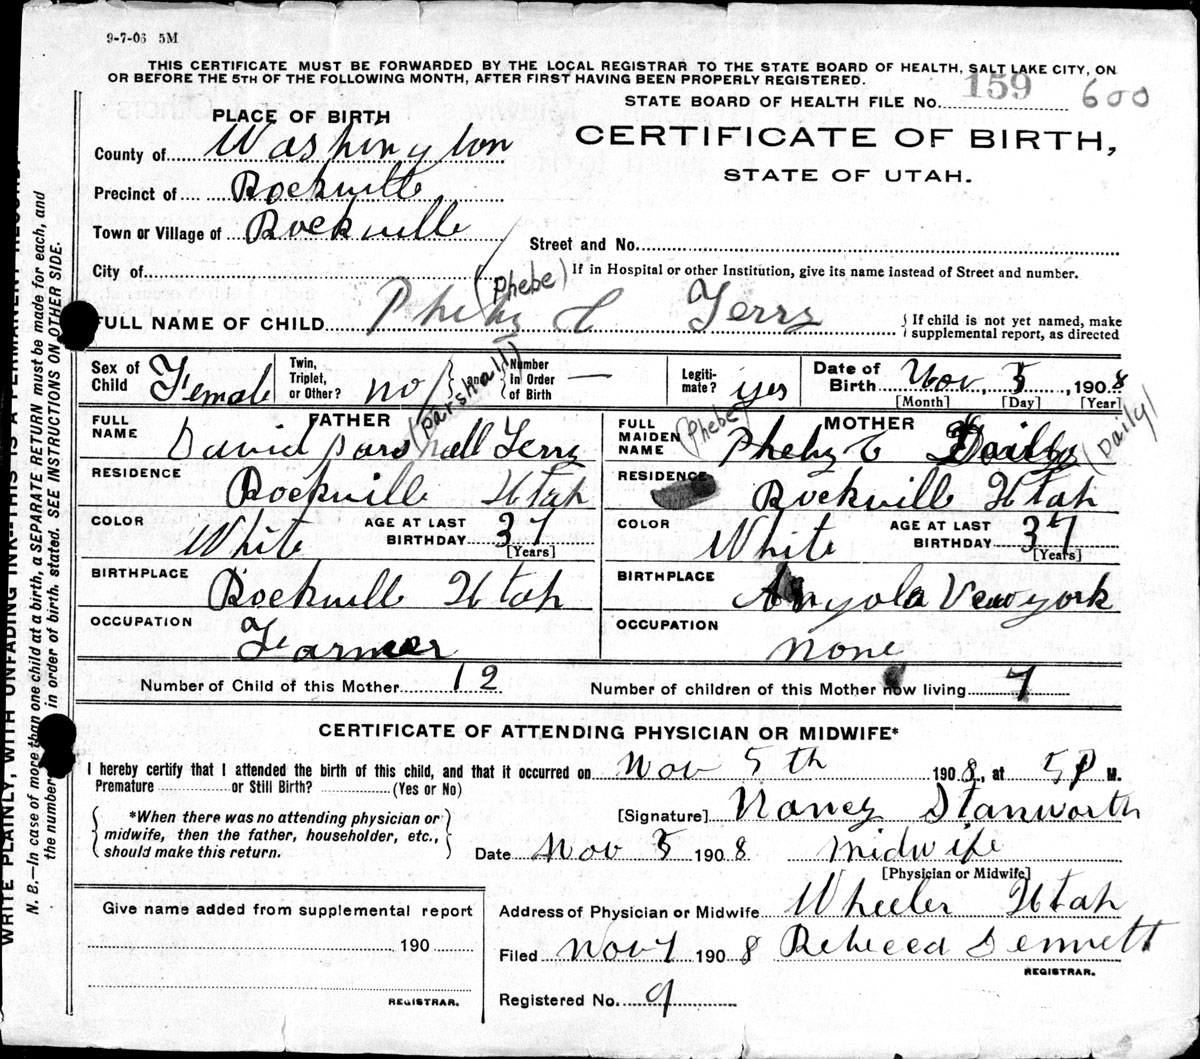 9-7-06 5M
THIS CERTIFICATE MUST BE FORWARDED BY THE LOCAL REGISTRAR TO THE STATE BOARD OF HEALTH, SALT LAKE CITY, ON
OR BEFORE THE 5TH OF THE FOLLOWING MONTH, AFTER FIRST HAVING BEEN PROPERLY REGISTERED.
STATE BOARD OF HEALTH FILE No. 159 600
PLACE OF BIRTH
CERTIFICATE OF BIRTH,
STATE OF UTAH.
County of Washington
Precinct of Rockville
Town or Village of Rockville
Street and No.
City of
If in Hospital or other Institution, give its name instead of Street and number.
(Phebe)
FULL NAME OF CHILD Pheby C Terry
If child is not yet named, make
supplemental report, as directed
Sex of Child Female
Twin, Triplet, or Other? no
Number In Order of Birth —
Legiti- mate? yes
Date of Birth Nov. 5, 1908
[Month] [Day] [Year]
FATHER
FULL NAME David Parshall Terry (Parshall)
RESIDENCE Rockville Utah
COLOR White AGE AT LAST BIRTHDAY 37 [Years]
BIRTHPLACE Rockville Utah
OCCUPATION Farmer
MOTHER
FULL MAIDEN NAME (Phebe) Pheby C Daily (Daily)
RESIDENCE Rockville Utah
COLOR White AGE AT LAST BIRTHDAY 37 [Years]
BIRTHPLACE Angola New york
OCCUPATION None
Number of Child of this Mother 12
Number of children of this Mother now living 7
CERTIFICATE OF ATTENDING PHYSICIAN OR MIDWIFE*
I hereby certify that I attended the birth of this child, and that it occurred on Nov 5th 1908, at 5 P M.
Premature or Still Birth? (Yes or No)
*When there was no attending physician or
midwife, then the father, householder, etc.,
should make this return.
[Signature] Nancy Stanworth
Date Nov 5 1908 Midwife
[Physician or Midwife]
Address of Physician or Midwife Wheeler Utah
Filed Nov 7 1908 Rebecca Dennett
REGISTRAR.
Registered No. 9
Give name added from supplemental report
190
REGISTRAR.
WRITE PLAINLY, WITH UNFADING INK--THIS IS A PERMANENT RECORD
N. B.—In case of more than one child at a birth, a SEPARATE RETURN must be made for each, and
the number in order of birth, stated. SEE INSTRUCTIONS ON OTHER SIDE.